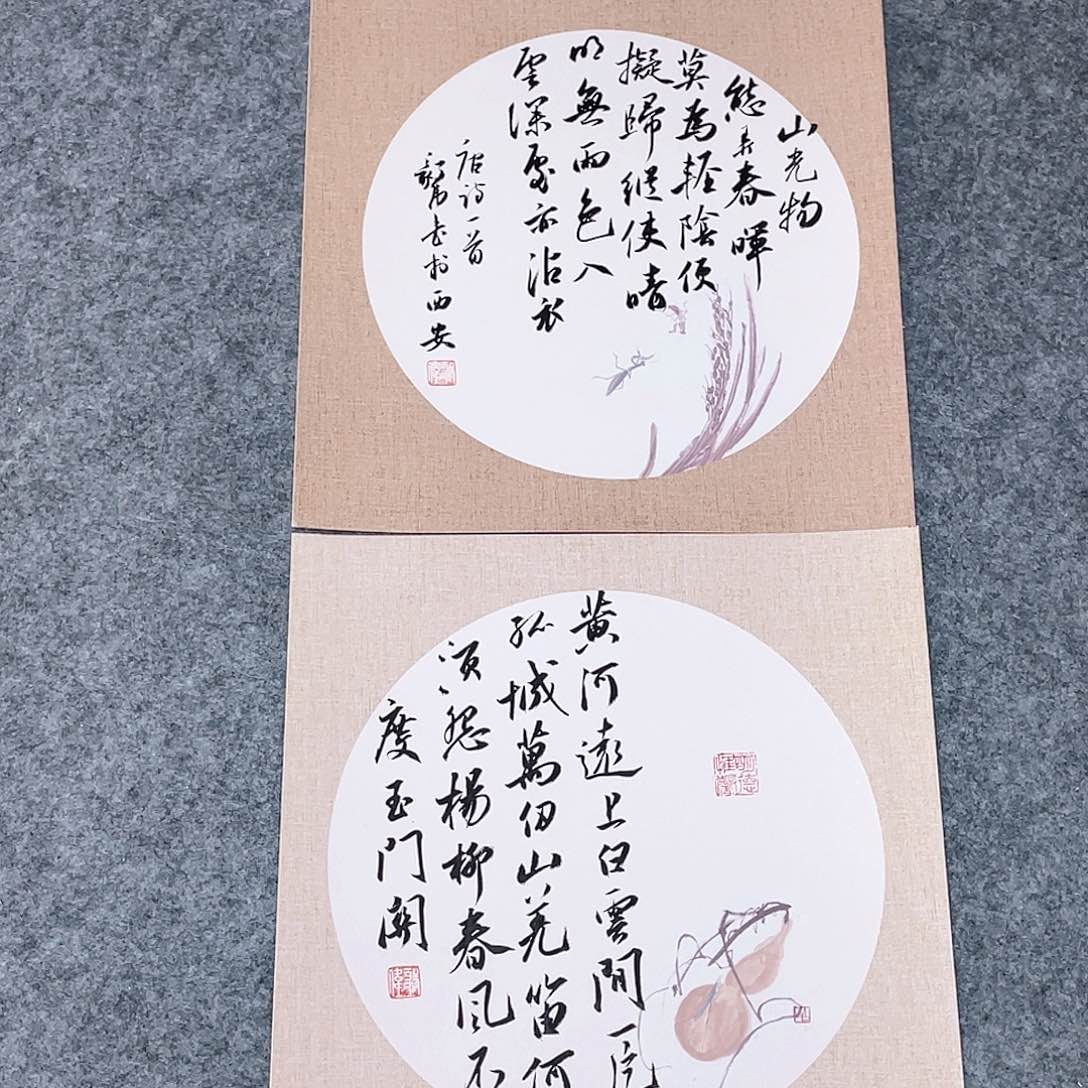 山光物
態弄春暉
莫為輕陰便
擬歸縱使晴
明無雨色入
雲深處亦沾衣
唐诗一首
书於西安
黄河遠上白雲間一片
孤城萬仞山羌笛何
須怨楊柳春風不
度玉门關